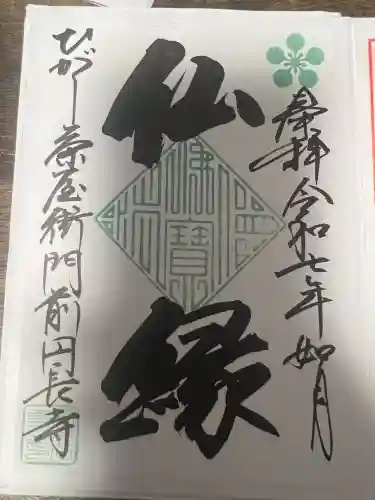 奉拝 令和七年 如月
仏縁
ひがし茶屋街門前円長寺